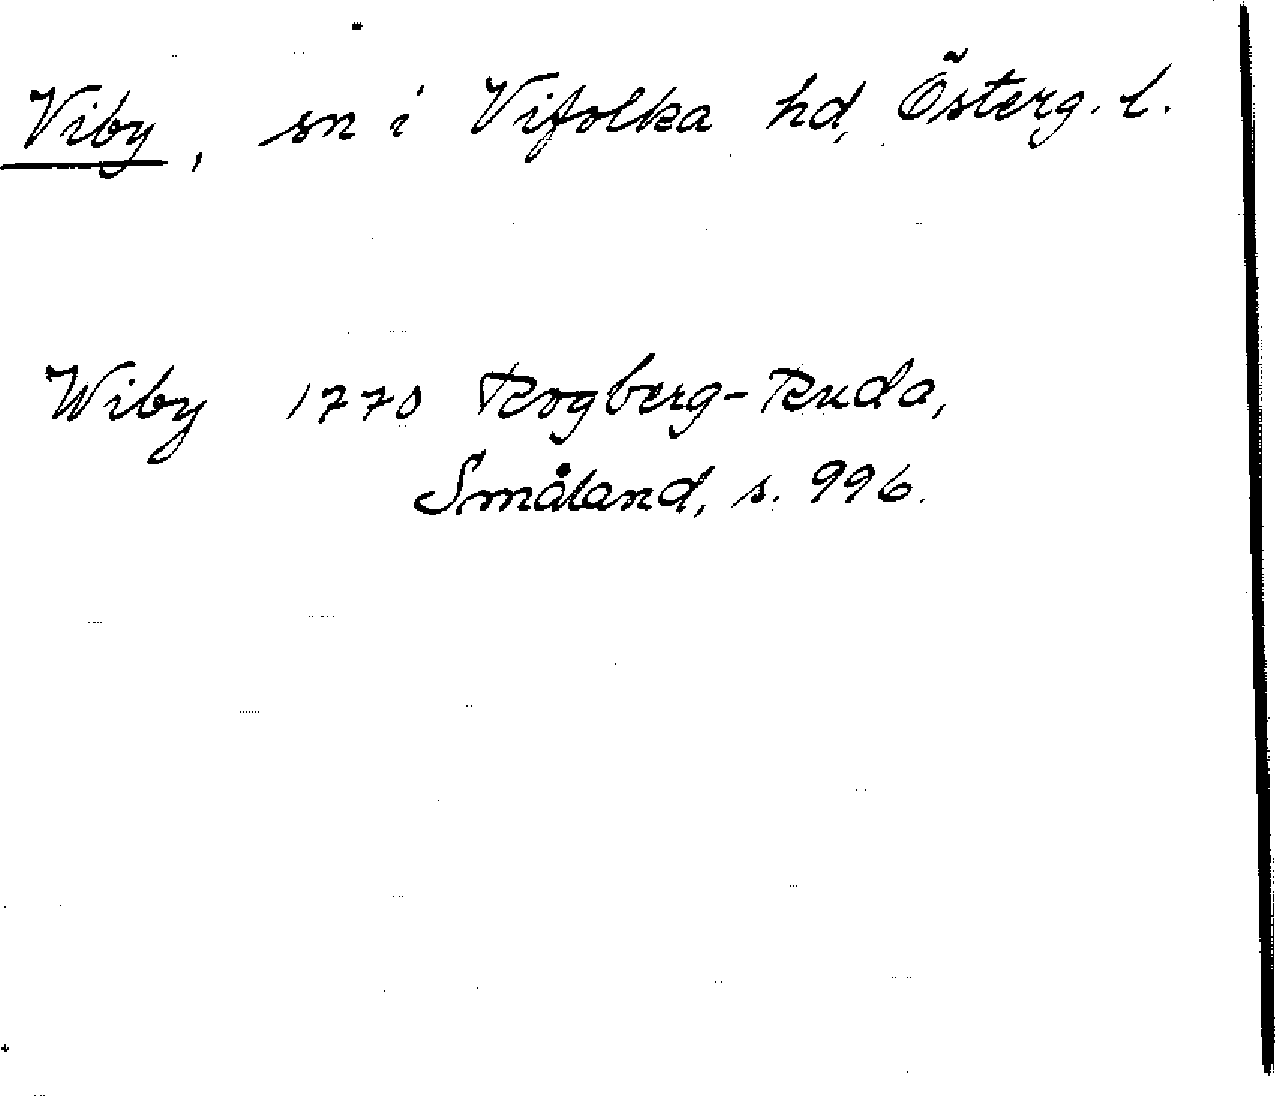 Viby, sn i Vifolka hd, Österg. l.
Wiby 1770 Rogberg-Ruda,
Småland, s. 996.